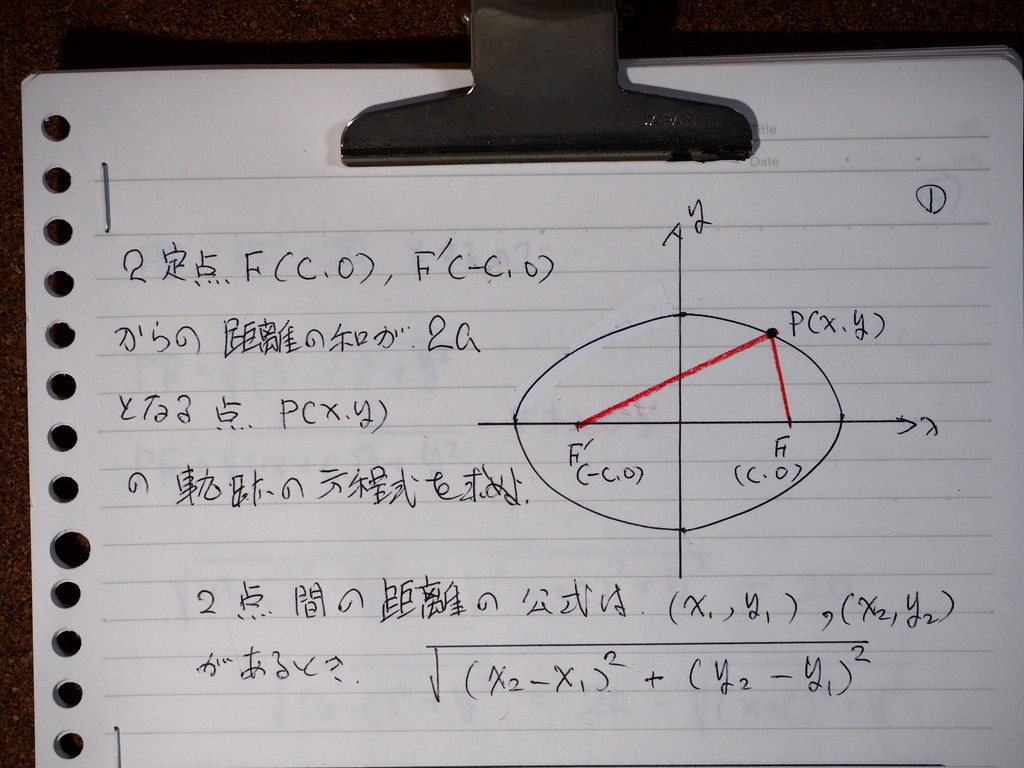 JAPAN
Title
Date
①
2定点 F(C,0), F'(-C,0)
からの距離の和が 2a
となる点 P(x,y)
の軌跡の方程式を求めよ.
y
P(x,y)
x
F'
(-C,0)
F
(C,0)
2点間の距離の公式は (x₁,y₁),(x₂,y₂)
があるとき. √(x₂-x₁)²+(y₂-y₁)²